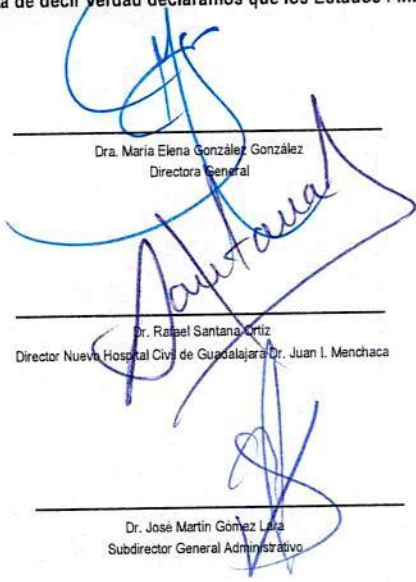 a de decir verdad declaramos que los Estados
Dra. María Elena González González
Directora General
Santana
Dr. Rafael Santana Ortiz
Director Nuevo Hospital Civil de Guadalajara Dr. Juan I. Menchaca
Dr. José Martin Gómez Lara
Subdirector General Administrativo